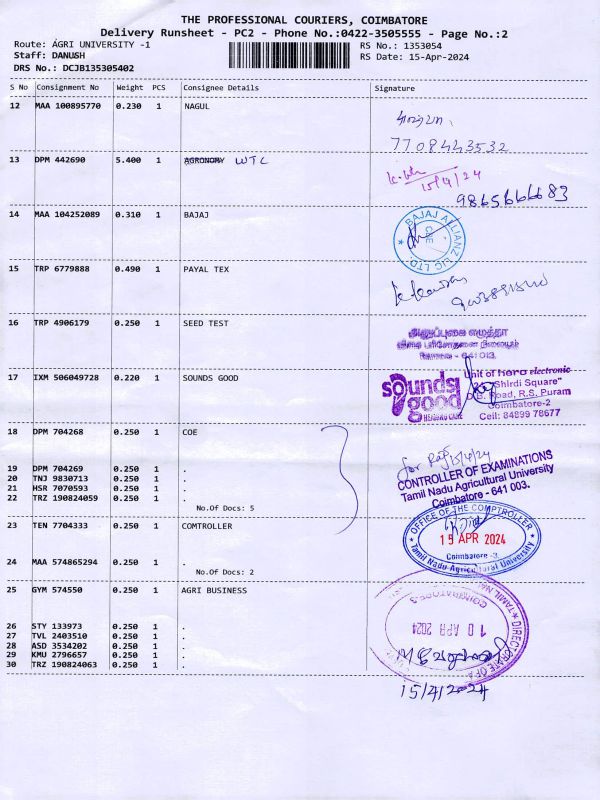 THE PROFESSIONAL COURIERS, COIMBATORE
Delivery Runsheet - PC2 - Phone No.:0422-3505555 - Page No.:2
Route: AGRI UNIVERSITY -1
Staff: DANUSH
DRS No.: DCJB135305402
RS No.: 1353054
RS Date: 15-Apr-2024
S No Consignment No Weight PCS Consignee Details Signature
12 MAA 100895770 0.230 1 NAGUL
7708443532
13 DPM 442690 5.400 1 AGRONOMY WTC
15/4/24
9865666683
14 MAA 104252089 0.310 1 BAJAJ
BAJAJ ALLIANZ LIC LTD.
CBE
15 TRP 6779888 0.490 1 PAYAL TEX
16 TRP 4906179 0.250 1 SEED TEST
விதை பரிசோதனை நிலையம்
கோவை - 641 013.
17 IXM 506049728 0.220 1 SOUNDS GOOD
sounds good
HEARING CARE
Unit of hero electronic
"Shirdi Square"
D.B. Road, R.S. Puram
Coimbatore-2
Cell: 84899 78677
18 DPM 704268 0.250 1 COE
for 15/4/24
CONTROLLER OF EXAMINATIONS
Tamil Nadu Agricultural University
Coimbatore - 641 003.
19 DPM 704269 0.250 1 .
20 TNJ 9830713 0.250 1 .
21 HSR 7070593 0.250 1 .
22 TRZ 190824059 0.250 1 .
No.Of Docs: 5
23 TEN 7704333 0.250 1 COMTROLLER
OFFICE OF THE COMPTROLLER
15 APR 2024
Coimbatore -3
Tamil Nadu Agricultural University
24 MAA 574865294 0.250 1 .
No.Of Docs: 2
25 GYM 574550 0.250 1 AGRI BUSINESS
DIRECTORATE OF
TAMIL NADU
COIMBATORE-3
10 APR 2024
26 STY 133973 0.250 1 .
27 TVL 2403510 0.250 1 .
28 ASD 3534202 0.250 1 .
29 KMU 2796657 0.250 1 .
30 TRZ 190824063 0.250 1 .
15/4/2024